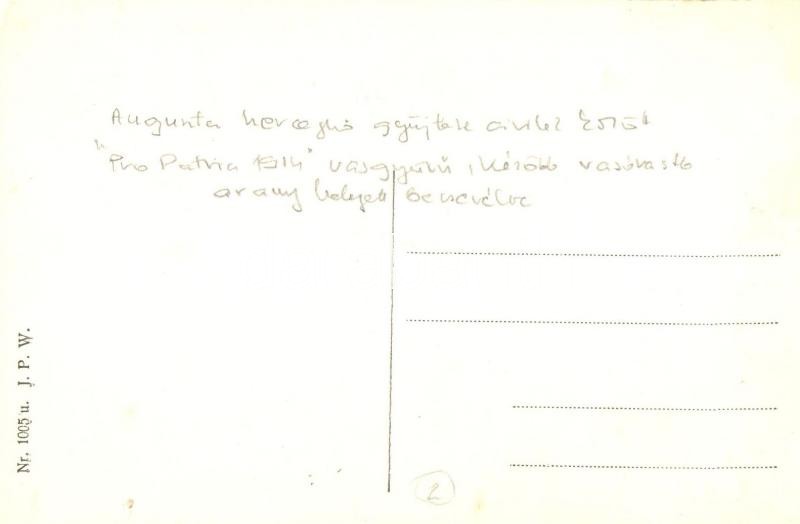 Augusta hercegnő gyűjtése
"Pro Patria 1914" vasgyűrű, később vasóra stb
arany helyett becserélve
Nr. 1005 u. J. P. W.
2